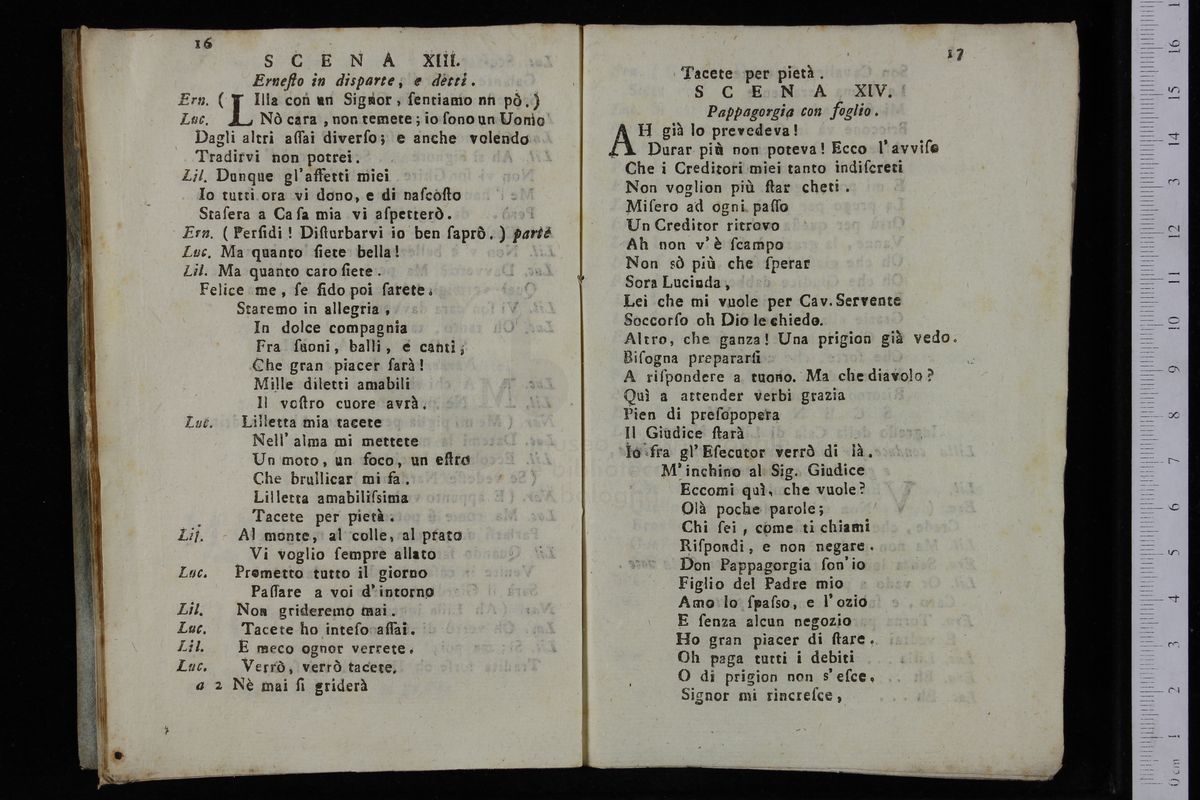 16
SCENA XIII.
Ernesto in disparte, e detti.
Ern. ( LIlla con un Signor, ſentiamo nn pò.)
Luc. Nò cara, non temete; io ſono un Uomo
Dagli altri aſſai diverſo; e anche volendo
Tradirvi non potrei.
Lil. Dunque gl'affetti miei
Io tutti ora vi dono, e di naſcoſto
Staſera a Caſa mia vi aſpetterò.
Ern. ( Perfidi! Diſturbarvi io ben ſaprò.) parte
Luc. Ma quanto ſiete bella!
Lil. Ma quanto caro ſiete.
Felice me, ſe fido poi ſarete.
Staremo in allegria,
In dolce compagnia
Fra ſuoni, balli, e canti;
Che gran piacer ſarà!
Mille diletti amabili
Il voſtro cuore avrà.
Luc. Lilletta mia tacete
Nell' alma mi mettete
Un moto, un foco, un eſtro
Che brullicar mi fa.
Lilletta amabiliſsima
Tacete per pietà.
Lil. Al monte, al colle, al prato
Vi voglio ſempre allato
Luc. Prometto tutto il giorno
Paſſare a voi d'intorno
Lil. Non grideremo mai.
Luc. Tacete ho inteſo aſſai.
Lil. E meco ognor verrete.
Luc. Verrò, verrò tacete.
a 2 Nè mai ſi griderà
17
Tacete per pietà.
SCENA XIV.
Pappagorgia con foglio.
AH già lo prevedeva!
Durar più non poteva! Ecco l'avviſo
Che i Creditori miei tanto indiſcreti
Non voglion più ſtar cheti.
Miſero ad ogni paſſo
Un Creditor ritrovo
Ah non v'è ſcampo
Non sò più che ſperar
Sora Lucinda,
Lei che mi vuole per Cav. Servente
Soccorſo oh Dio le chiedo.
Altro, che ganza! Una prigion già vedo.
Biſogna prepararſi
A riſpondere a tuono. Ma che diavolo?
Quì a attender verbi grazia
Pien di preſopopera
Il Giudice ſtarà
Io fra gl'Eſecutor verrò di là.
M'inchino al Sig. Giudice
Eccomi quì, che vuole?
Olà poche parole;
Chi ſei, come ti chiami
Riſpondi, e non negare.
Don Pappagorgia ſon'io
Figlio del Padre mio
Amo lo ſpaſso, e l'ozio
E ſenza alcun negozio
Ho gran piacer di ſtare.
Oh paga tutti i debiti
O di prigion non s'eſce.
Signor mi rincreſce,